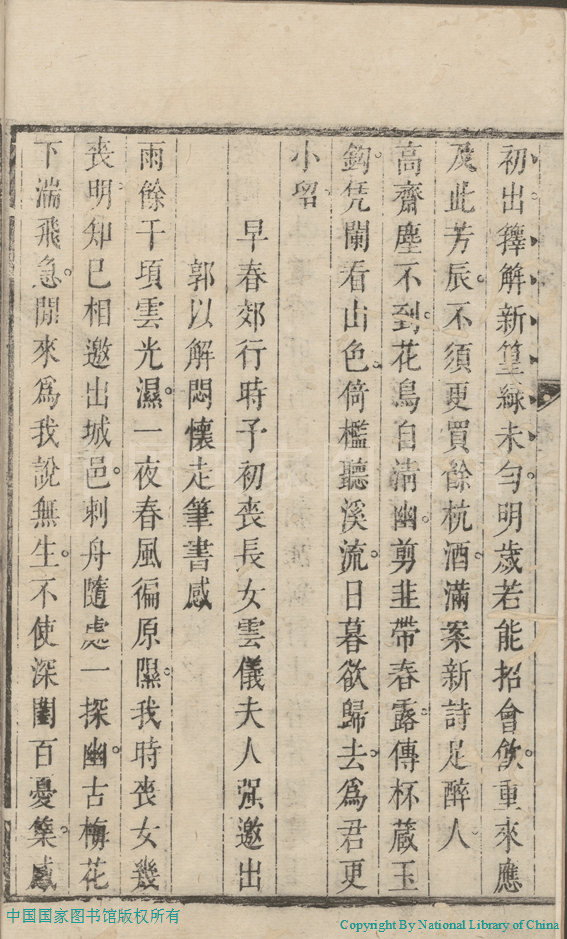 初出籜解新篁緑未勻明歲若能招會飲重來應
及此芳辰不須更買餘杭酒滿案新詩足醉人
高齋塵不到花鳥自清幽剪韭帶春露傳杯蔵玉
鈎凭闌看山色倚檻聽溪流日暮欲歸去爲君更
小留
早春郊行時予初喪長女雲儀夫人強邀出
郭以解悶懷走筆書感
雨餘千頃雲光濕一夜春風徧原隰我時喪女幾
喪明知已相邀出城邑刺舟隨處一探幽古梅花
下湍飛急閒來爲我說無生不使深閨百憂集感
中国国家图书馆版权所有
Copyright By National Library of China